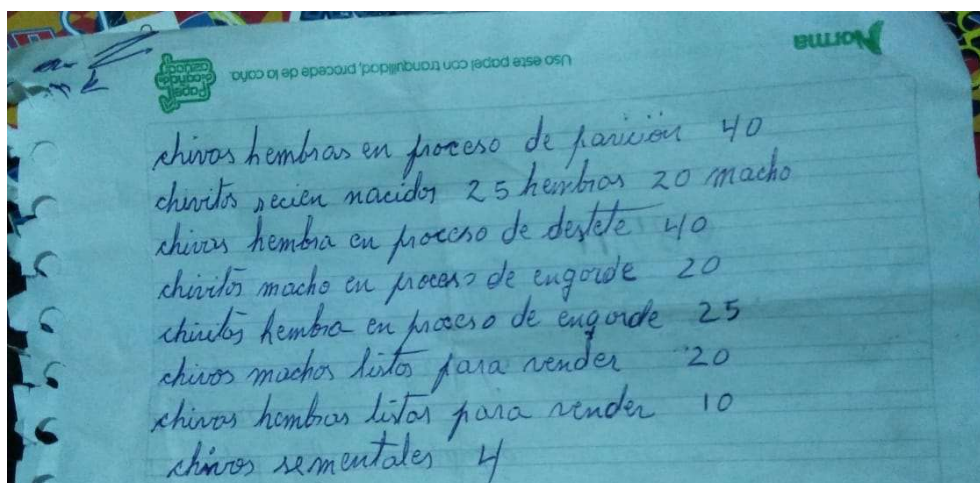 Norma
Uso este papel con tranquilidad, procede de la caña.
chivas hembras en proceso de parición 40
chivitos recien nacidos 25 hembras 20 macho
chivas hembra en proceso de destete 40
chivitos macho en proceso de engorde 20
chivitos hembra en proceso de engorde 25
chivos machos listos para vender 20
chivas hembras listas para vender 10
chivos sementales 4